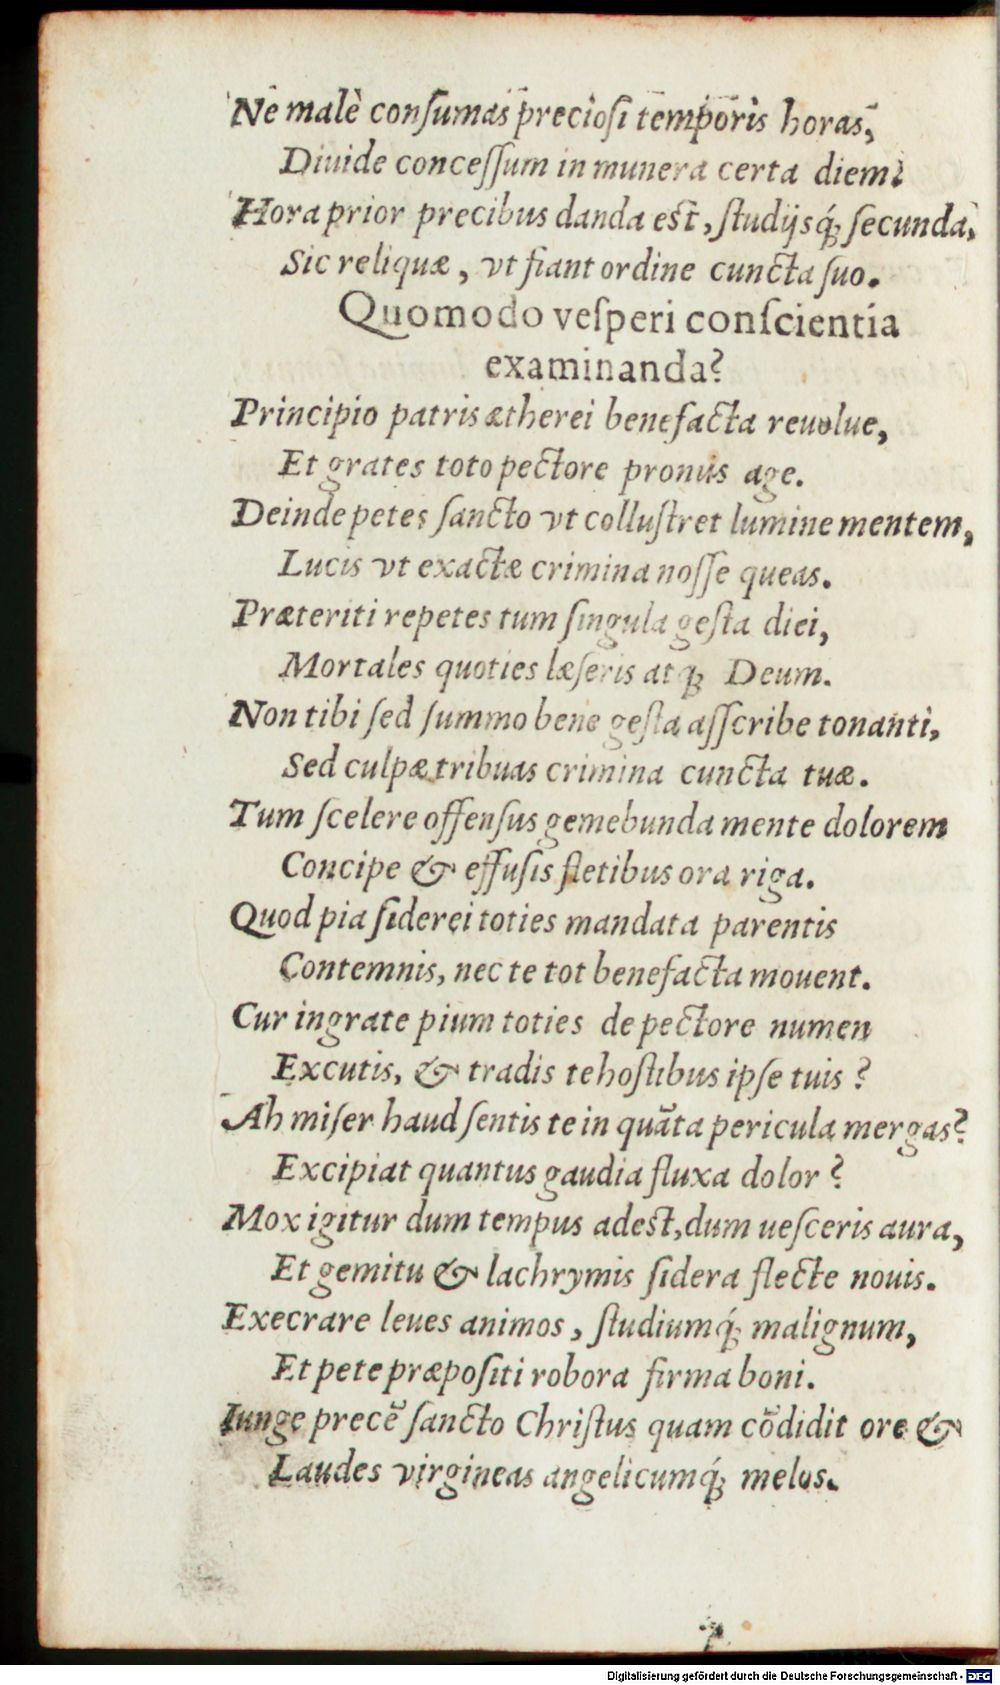 Ne malè conſumas precioſi temporis horas,
Diuide conceſſum in munera certa diem:
Hora prior precibus danda est, ſtudijsq́ꝫ ſecunda,
Sic reliquæ, vt fiant ordine cuncta ſuo.
Quomodo veſperi conſcientia
examinanda?
Principio patris ætherei benefacta reuolue,
Et grates toto pectore pronus age.
Deinde petes ſancto vt colluſtret lumine mentem,
Lucis vt exactæ crimina noſſe queas.
Præteriti repetes tum ſingula geſta diei,
Mortales quoties læſeris atqꝫ Deum.
Non tibi ſed ſummo bene geſta aſſcribe tonanti,
Sed culpæ tribuas crimina cuncta tuæ.
Tum ſcelere offenſus gemebunda mente dolorem
Concipe & effuſis fletibus ora riga.
Quod pia ſiderei toties mandata parentis
Contemnis, nec te tot benefacta mouent.
Cur ingrate pium toties de pectore numen
Excutis, & tradis te hoſtibus ipſe tuis?
Ah miſer haud ſentis te in quāta pericula mergas?
Excipiat quantus gaudia fluxa dolor?
Mox igitur dum tempus adest, dum ueſceris aura,
Et gemitu & lachrymis ſidera flecte nouis.
Execrare leues animos, ſtudiumq́ꝫ malignum,
Et pete præpoſiti robora firma boni.
Iunge precē ſancto Chriſtus quam cōdidit ore &
Laudes virgineas angelicumq́ꝫ melos.
Digitalisierung gefördert durch die Deutsche Forschungsgemeinschaft - DFG